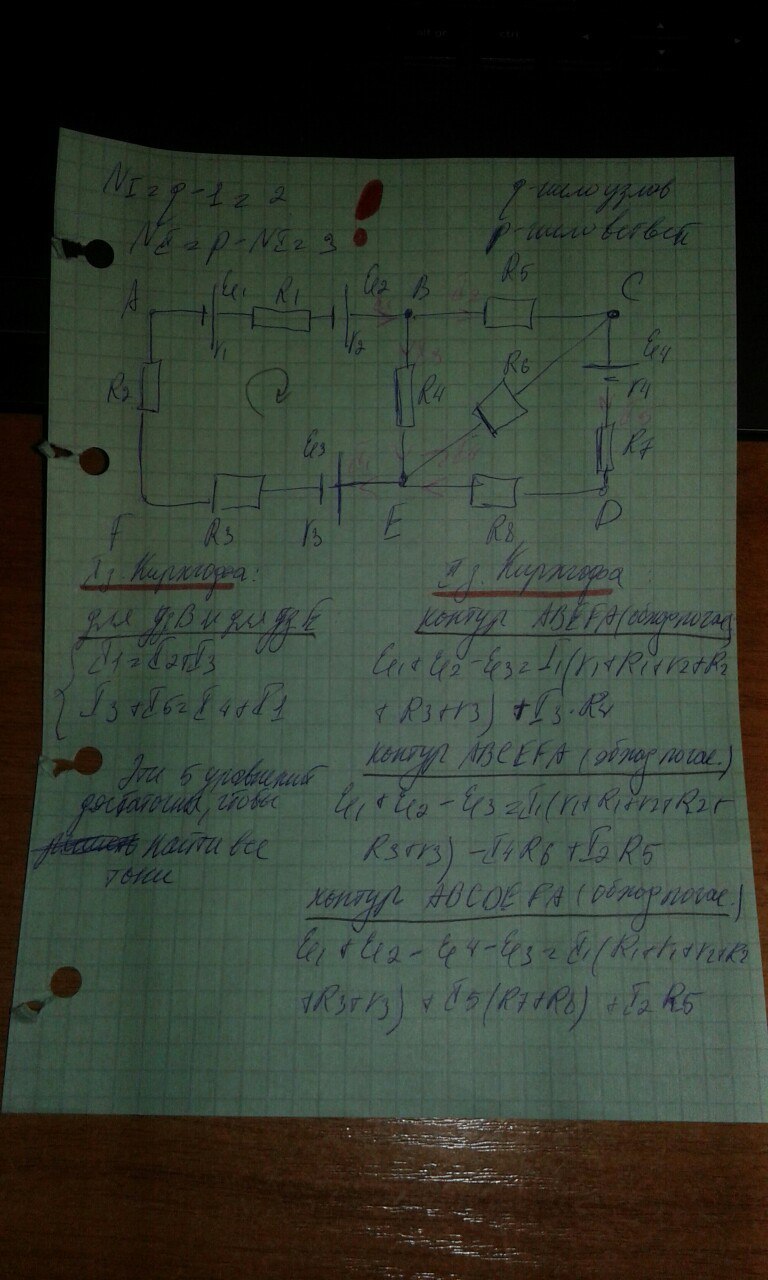 NI = q - 1 = 2
q - число узлов
NE = p - NI = 3
p - число ветвей
!
A ℰ1 R1 ℰ2 B R5 C
r1 r2
R2 R4 R6 ℰ4
r4
R7
ℰ3
F R3 r3 E R8 D
I з. Кирхгофа:
для уз B и для уз E
I1 = I2 + I3
I3 + I6 = I4 + I1
Эти 5 уравнений
достаточно, чтобы
найти все
токи
II з. Кирхгофа
контур ABEFA (обход почас.)
ℰ1 + ℰ2 - ℰ3 = I1(r1 + R1 + r2 + R2
+ R3 + r3) + I3·R4
контур ABCEFA (обход почас.)
ℰ1 + ℰ2 - ℰ3 = I1(r1 + R1 + r2 + R2 +
R3 + r3) - I4R6 + I2R5
контур ABCDEFA (обход почас.)
ℰ1 + ℰ2 - ℰ4 - ℰ3 = I1(R1 + r1 + r2 + R2
+ R3 + r3) + I5(R7 + R8) + I2R5